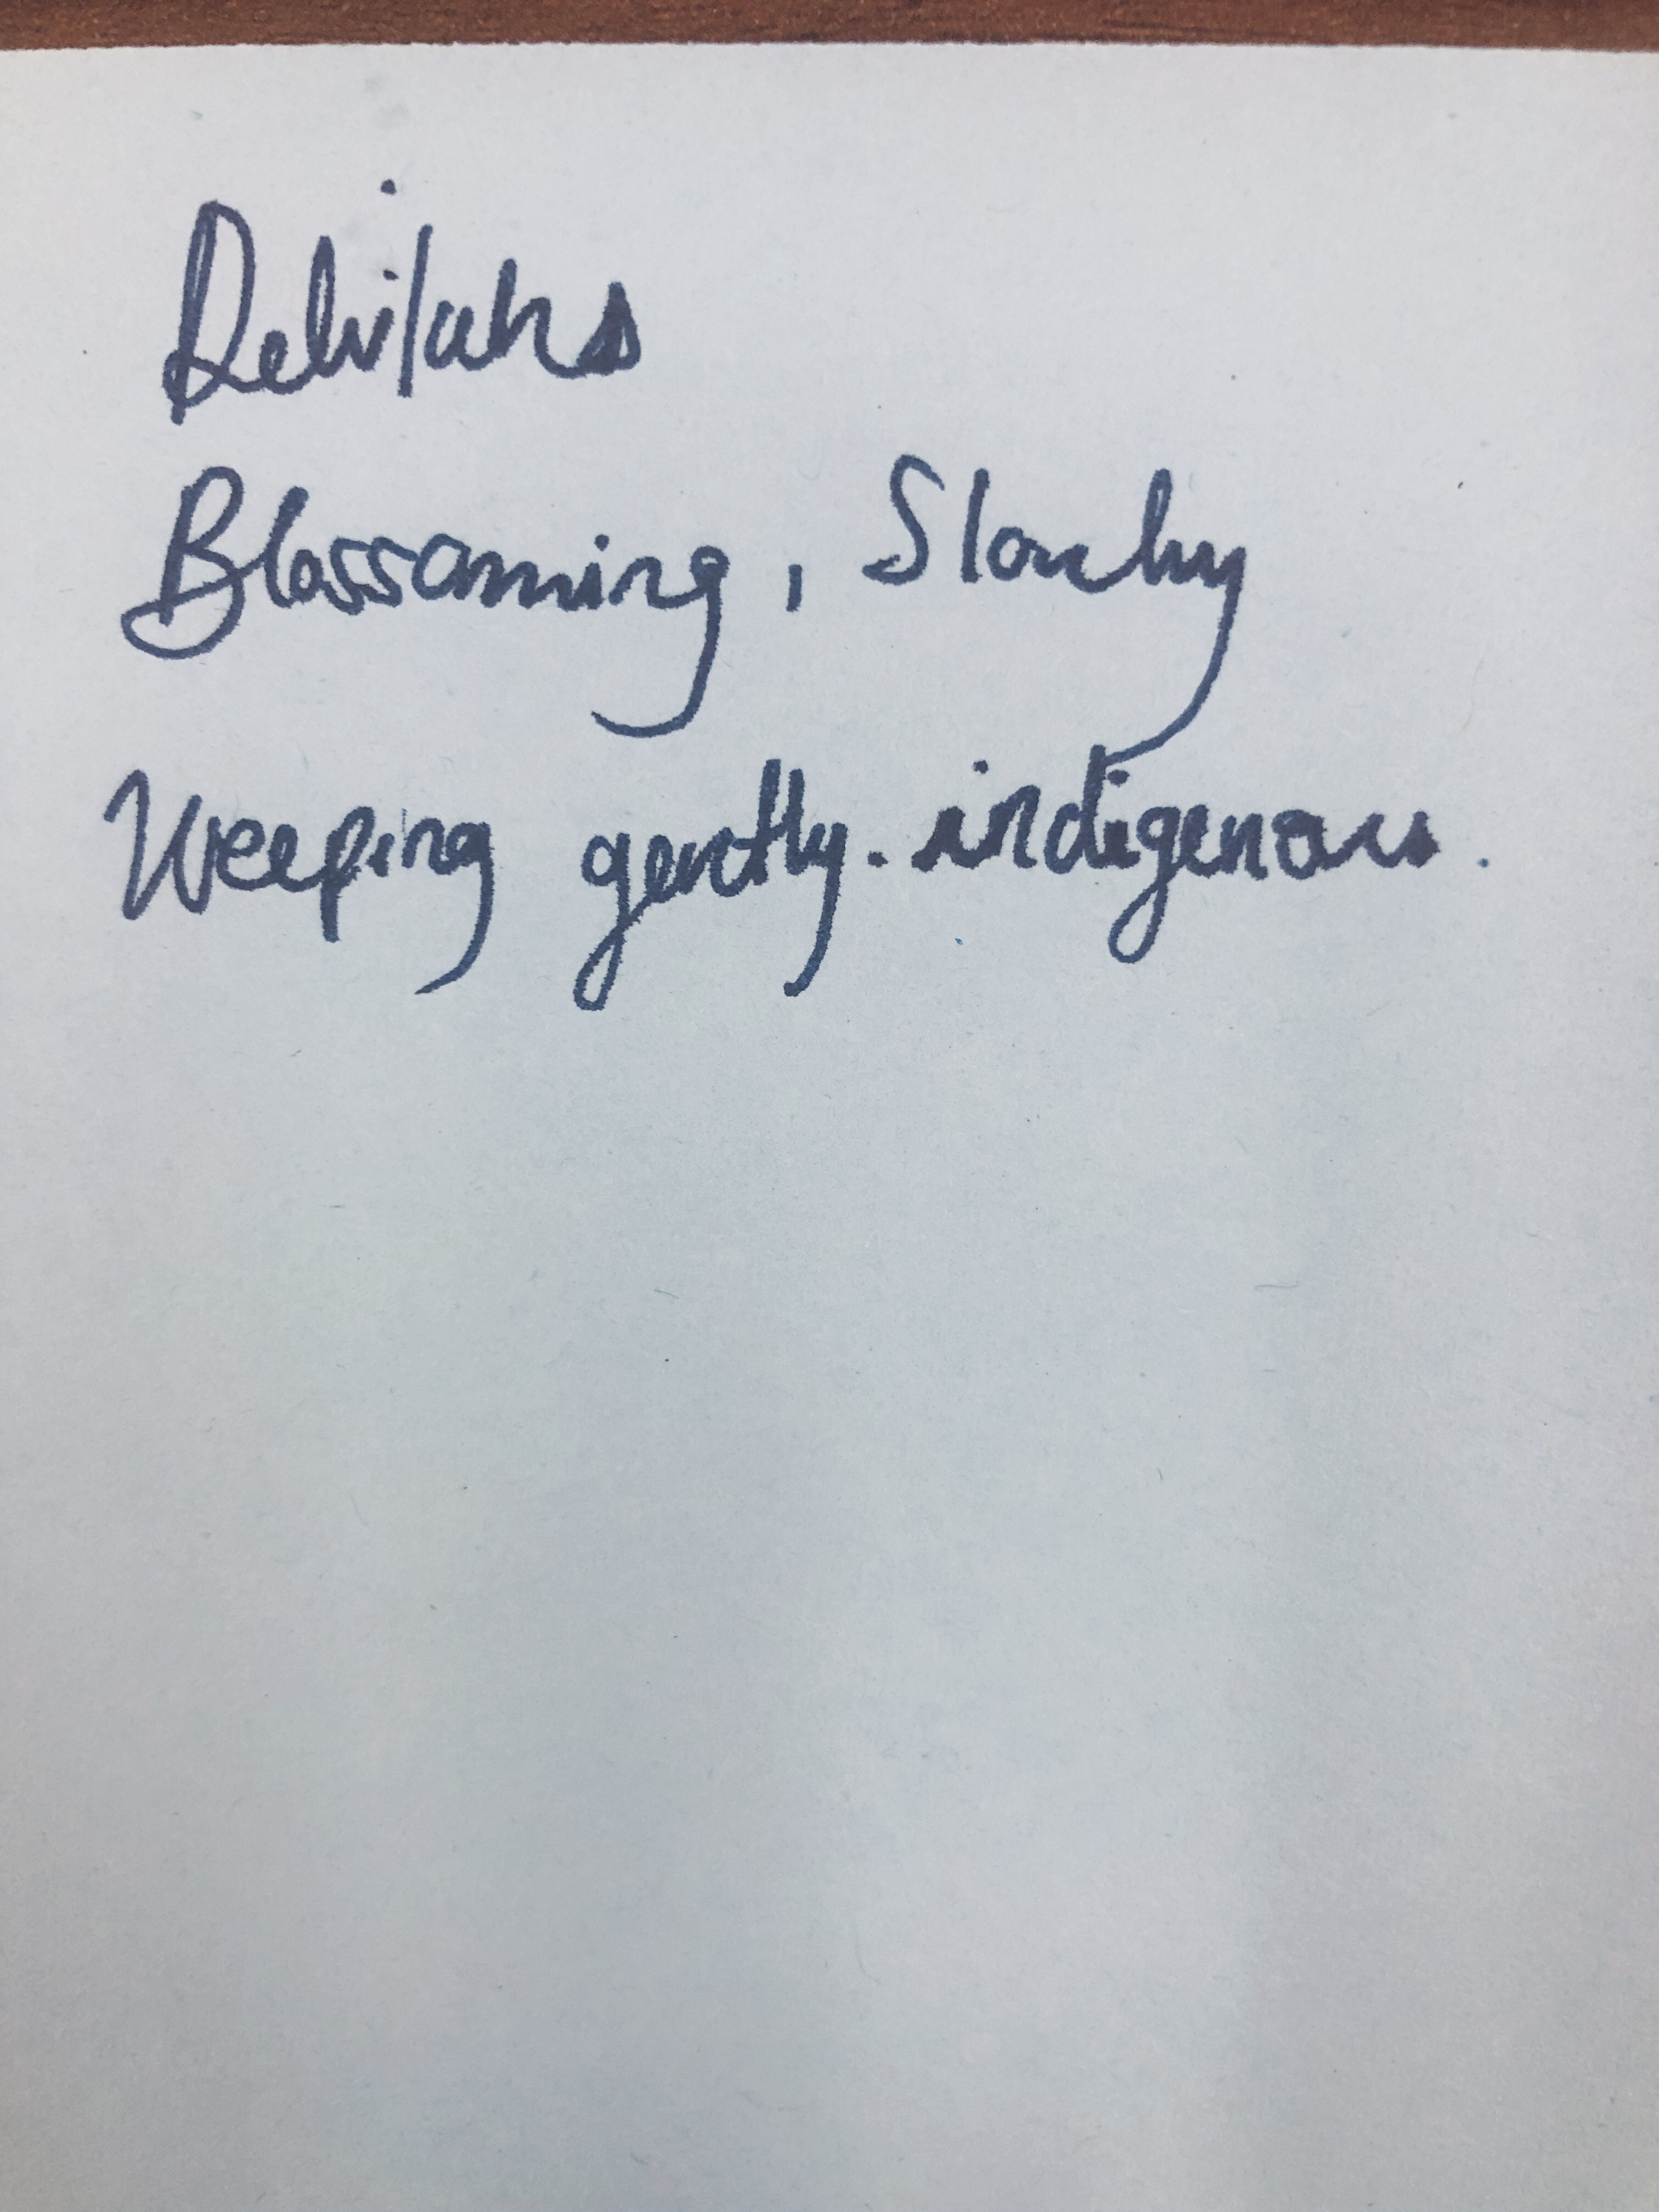 Blossoming, Slowly
Weeping gently. indigenous.